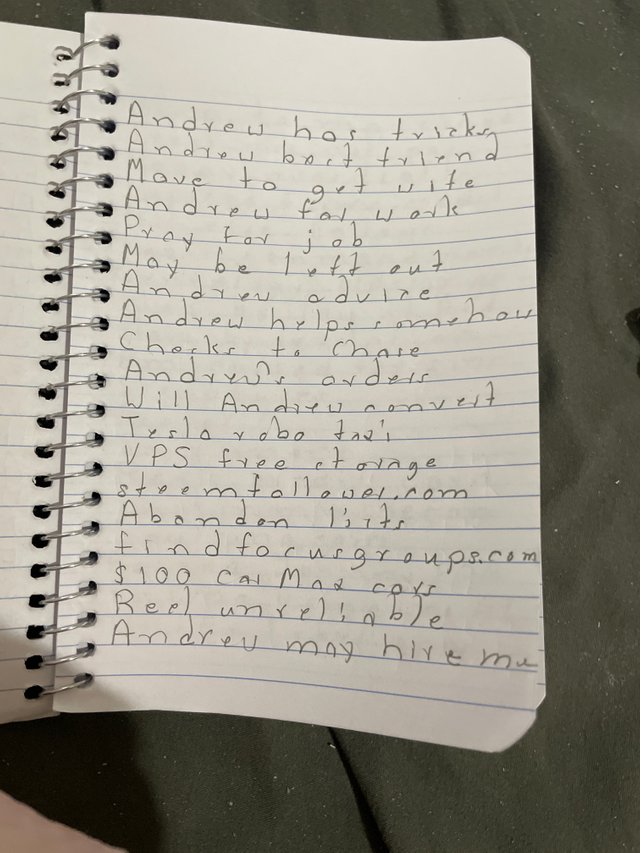 Andrew has tricks
Andrew best friend
Move to get wife
Andrew for work
Pray for job
May be left out
Andrew advice
Andrew helps somehow
Checks to Chase
Andrew's orders
Will Andrew convert
Tesla robo taxi
VPS free storage
steemfollower.com
Abandon lists
findfocusgroups.com
$100 CarMax cars
Reel unreliable
Andrew may hire me